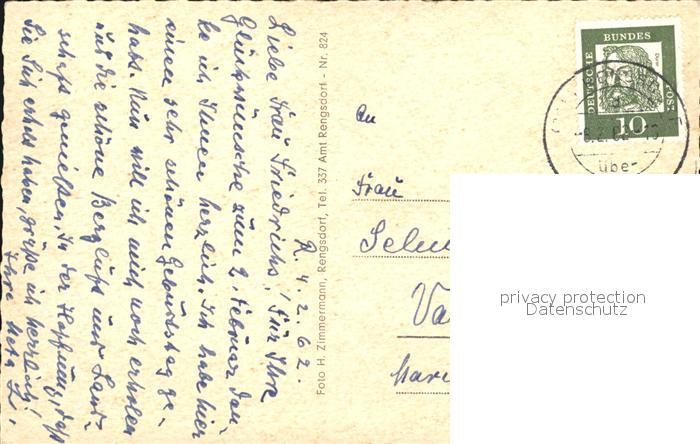 R. 4.2.62.
Liebe Frau Friedrichs! Für Ihre
Glückwünsche zum 2. Februar dan-
ke ich Ihnen herzlich. Ich habe hier
einen sehr schönen Geburtstag ge-
habt. Nun will ich mich noch erholen
und die schöne Bergluft und Land-
schaft genießen. In der Hoffnung, daß
Sie sich erholt haben, grüße ich herzlich!
Ihre Meta L.
Foto H. Zimmermann, Rengsdorf, Tel. 337 Amt Rengsdorf - Nr. 824
An
Frau
DEUTSCHE
BUNDES
POST
10
über
privacy protection
Datenschutz